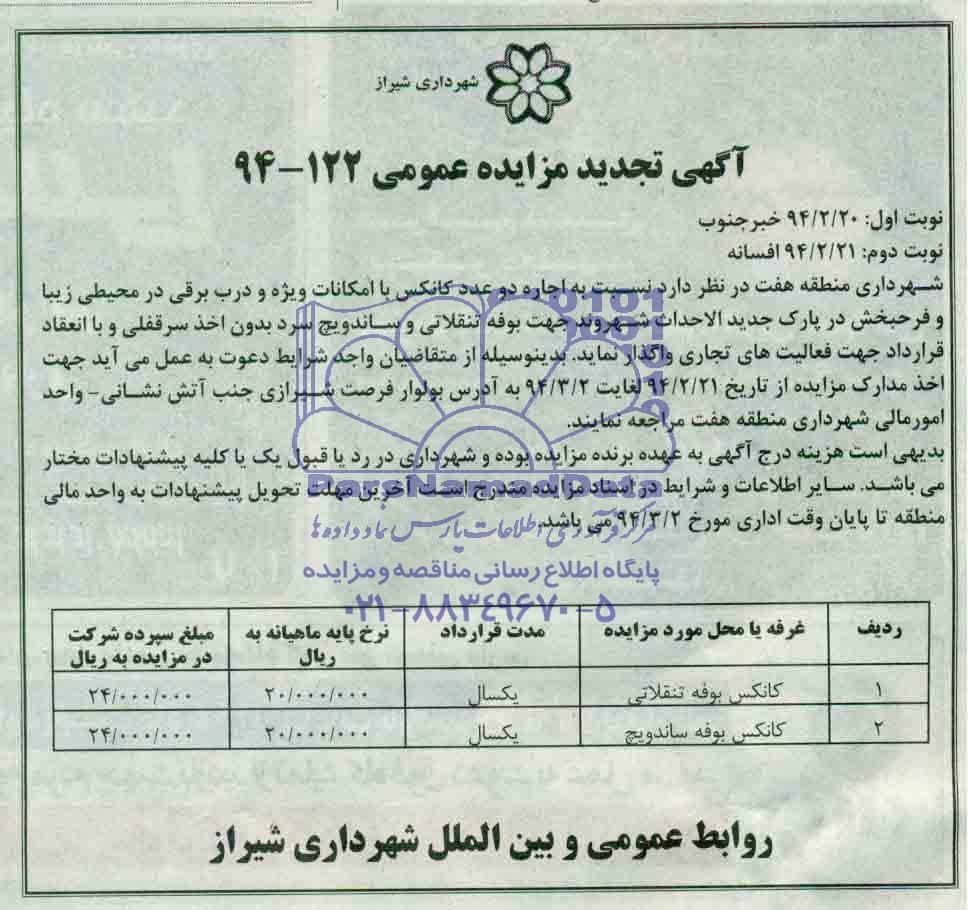 شهرداری شیراز
آگهی تجدید مزایده عمومی ۱۲۲-۹۴
نوبت اول: ۹۴/۲/۲۰ خبرجنوب
نوبت دوم: ۹۴/۲/۲۱ افسانه
شهرداری منطقه هفت در نظر دارد نسبت به اجاره دو عدد کانکس با امکانات ویژه و درب برقی در محیطی زیبا
و فرحبخش در پارک جدید الاحداث شهروند جهت بوفه تنقلاتی و ساندویچ سرد بدون اخذ سرقفلی و با انعقاد
قرارداد جهت فعالیت های تجاری واگذار نماید. بدینوسیله از متقاضیان واجد شرایط دعوت به عمل می آید جهت
اخذ مدارک مزایده از تاریخ ۹۴/۲/۲۱ لغایت ۹۴/۳/۲ به آدرس بولوار فرصت شیرازی جنب آتش نشانی- واحد
امورمالی شهرداری منطقه هفت مراجعه نمایند.
بدیهی است هزینه درج آگهی به عهده برنده مزایده بوده و شهرداری در رد یا قبول یک یا کلیه پیشنهادات مختار
می باشد. سایر اطلاعات و شرایط در اسناد مزایده مندرج است آخرین مهلت تحویل پیشنهادات به واحد مالی
منطقه تا پایان وقت اداری مورخ ۹۴/۳/۲ می باشد.
ParsNamadData
مرکز فرآوری اطلاعات پارس نماد داده ها
پایگاه اطلاع رسانی مناقصه و مزایده
۰۲۱-۸۸۳۴۹۶۷۰-۵
ردیف غرفه یا محل مورد مزایده مدت قرارداد نرخ پایه ماهیانه به ریال مبلغ سپرده شرکت در مزایده به ریال
۱ کانکس بوفه تنقلاتی یکسال ۲۰/۰۰۰/۰۰۰ ۲۴/۰۰۰/۰۰۰
۲ کانکس بوفه ساندویچ یکسال ۲۰/۰۰۰/۰۰۰ ۲۴/۰۰۰/۰۰۰
روابط عمومی و بین الملل شهرداری شیراز